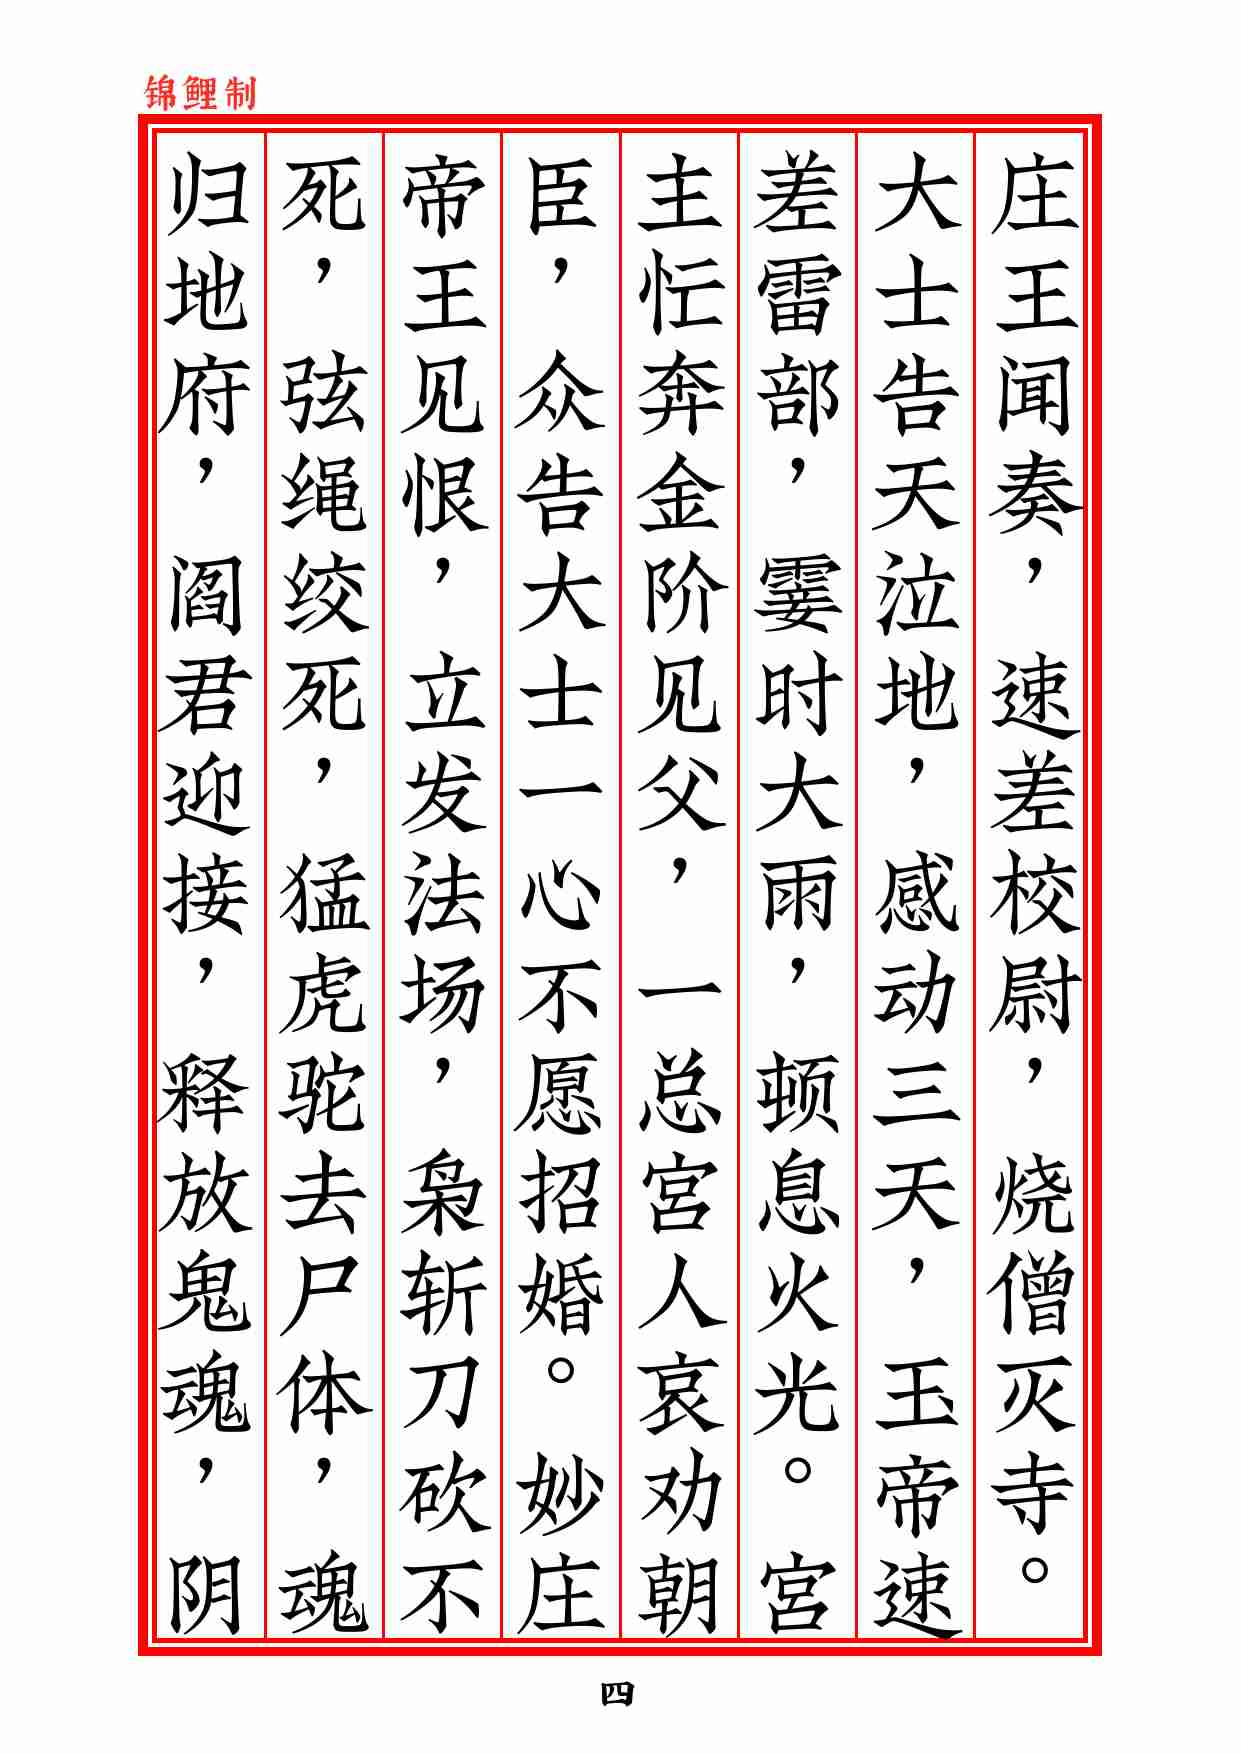 锦鲤制
庄王闻奏，速差校尉，烧僧灭寺。
大士告天泣地，感动三天，玉帝速
差雷部，霎时大雨，顿息火光。宫
主忙奔金阶见父，一总宫人哀劝朝
臣，众告大士一心不愿招婚。妙庄
帝王见恨，立发法场，枭斩刀砍不
死，弦绳绞死，猛虎驼去尸体，魂
归地府，阎君迎接，释放鬼魂，阴
四